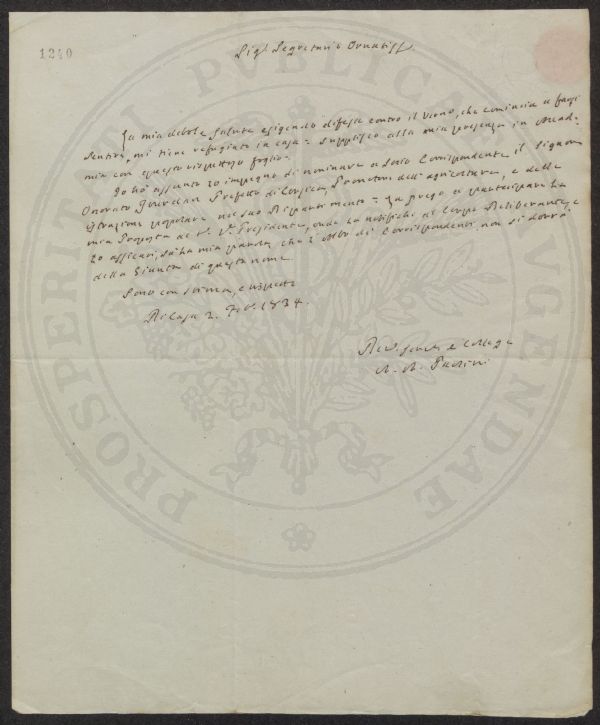 1240
Sigr. Segretario Ornatiss.
La mia debole salute esigendo difesa contro il verno, che comincia a farsi
sentire, mi tiene refugiato in casa = supplisco alla mia presenza in Acad-
mia con questo rispettoso foglio.
Io hò assunto lo impegno di nominare a Socio Corrispondente il Signore
Onorato Jourdan Prefetto di Corsica, Promotore dell'agricoltura, e della
istruzione popolare nel suo Dipartimento = La prego a partecipare la
mia Proposta al Presidente, onde la notifichi al Corpo Deliberante, e
lo assicuri, sulla mia parola, che l'Albo dei Corrispondenti non si dorrà
della Giunta di questo nome.
Sono con stima, e rispetto
Di Casa 2. 1834.
Servit. e Collega
PROSPERITATI PVBLICAE AVGENDAE